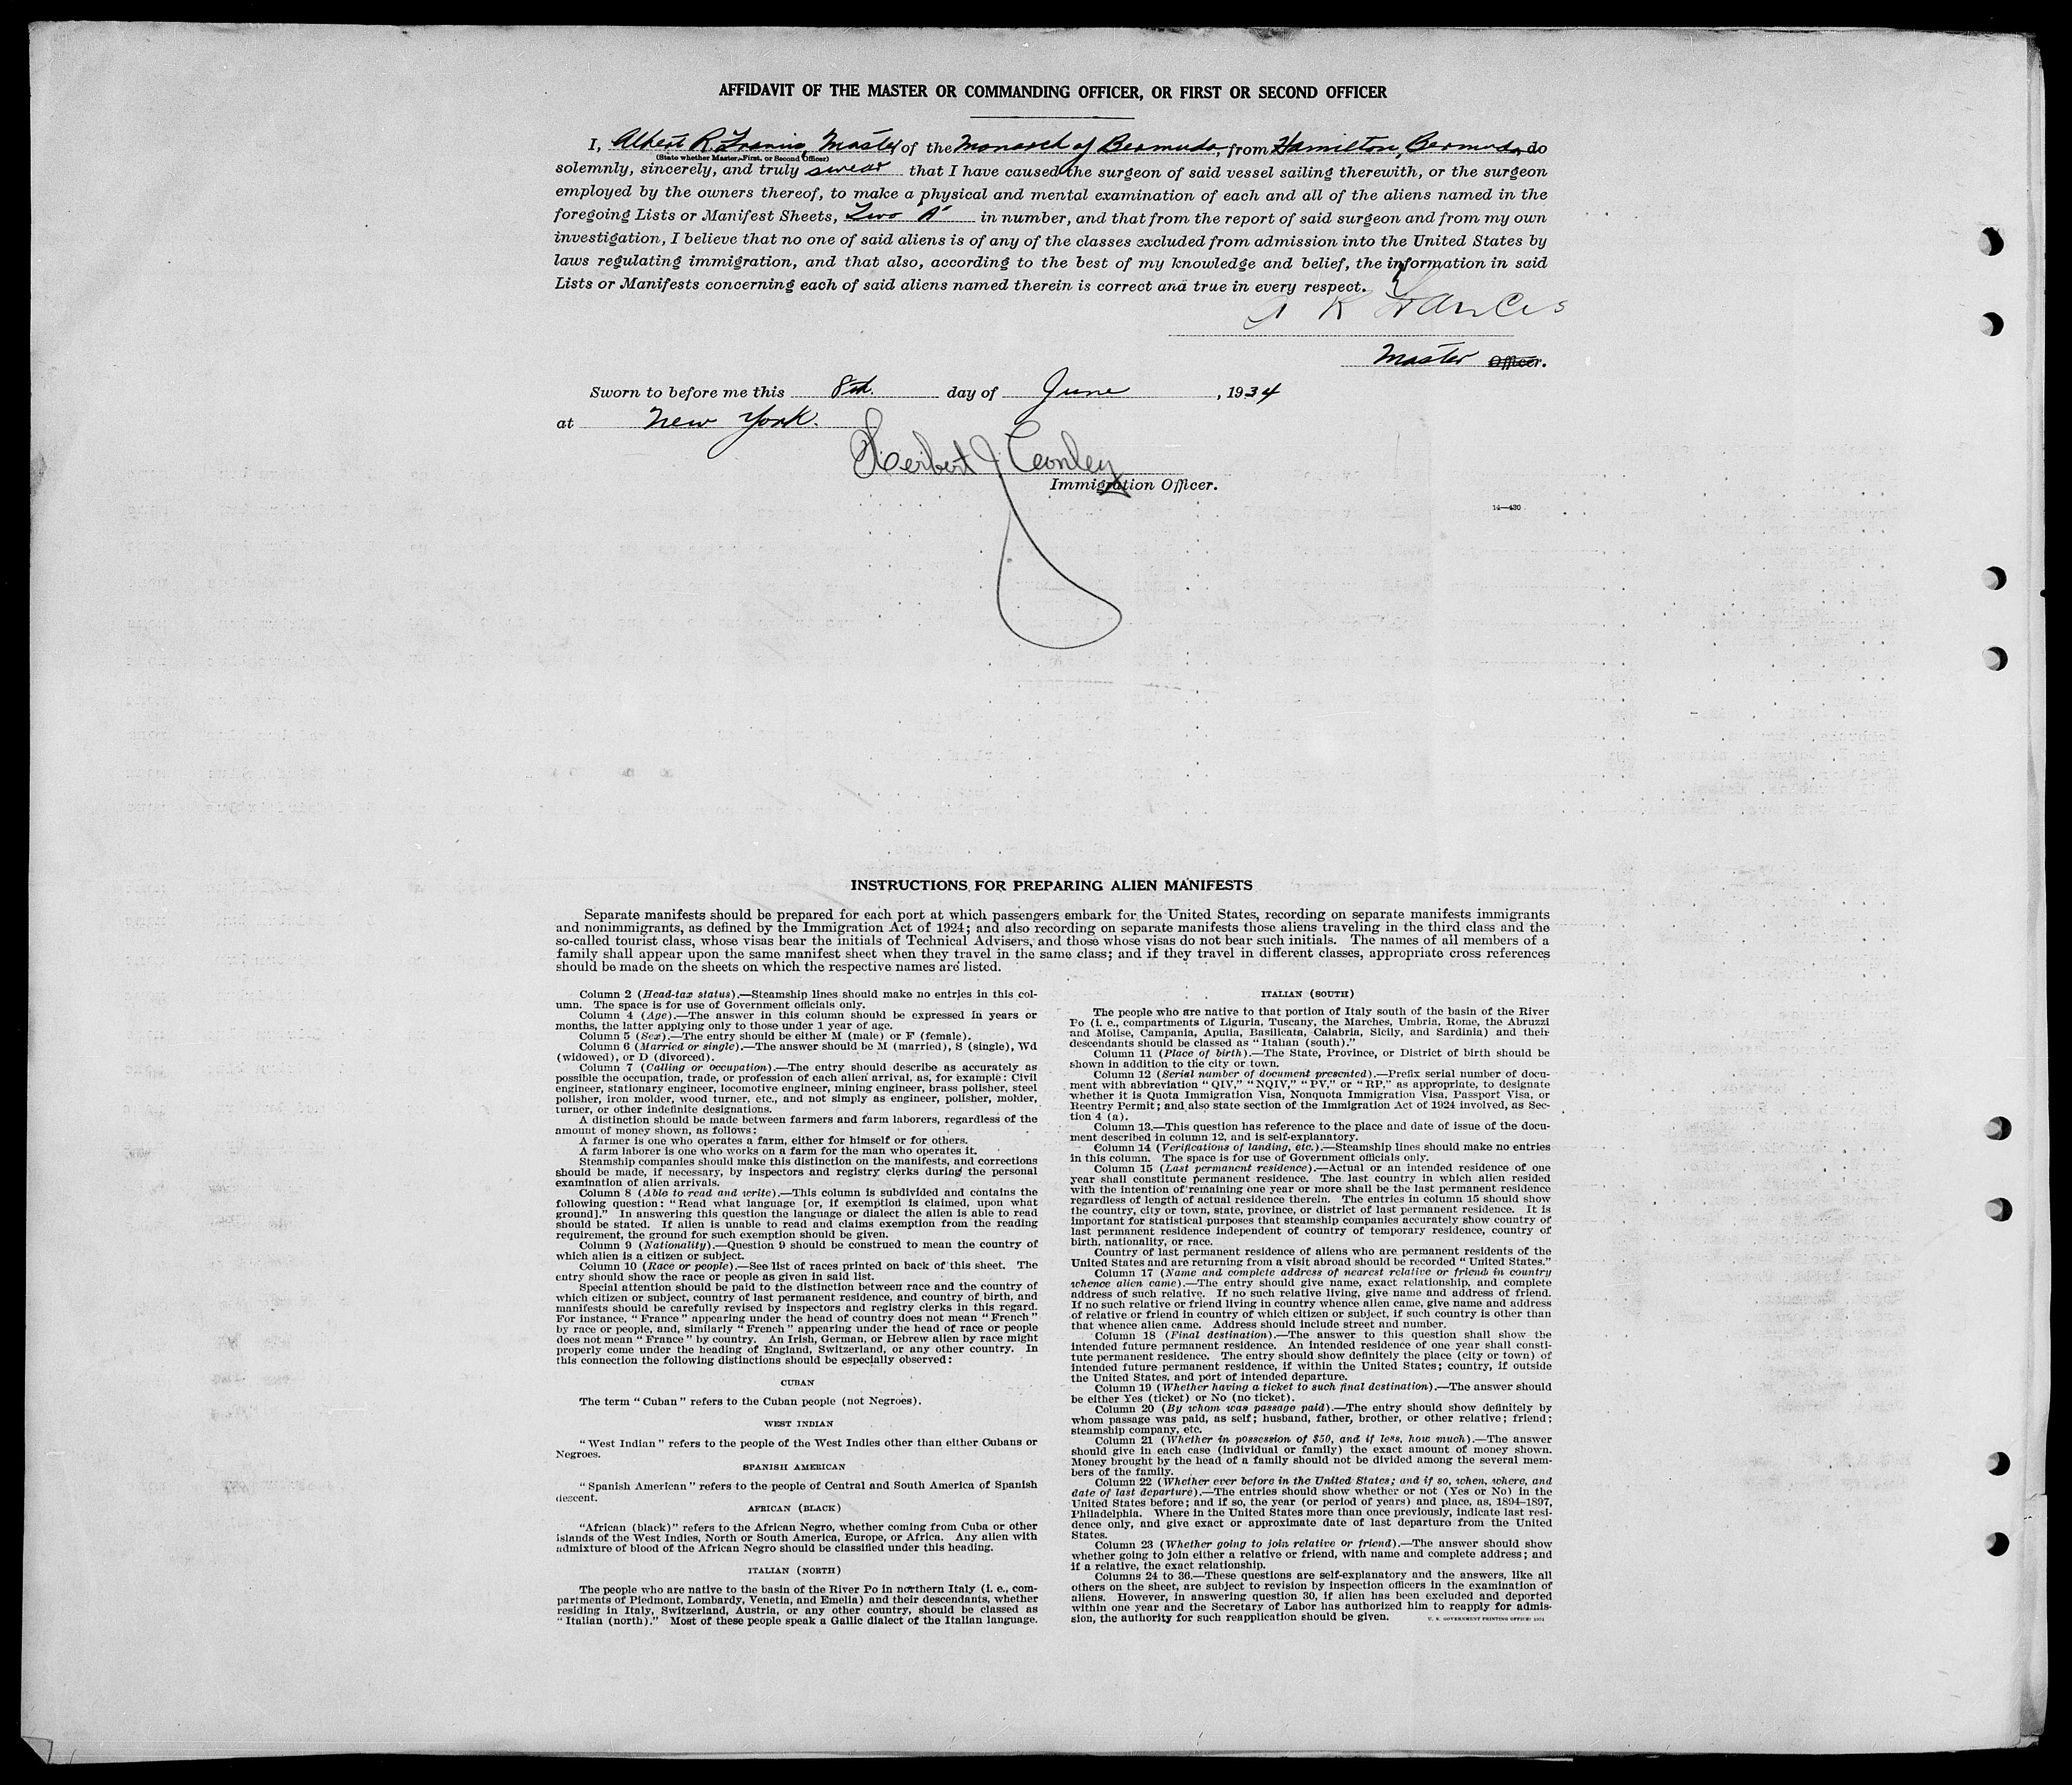 AFFIDAVIT OF THE MASTER OR COMMANDING OFFICER, OR FIRST OR SECOND OFFICER
I, Albert R. Francis, Master of the Monarch of Bermuda, from Hamilton, Bermuda, do
(State whether Master, First, or Second Officer)
solemnly, sincerely, and truly swear that I have caused the surgeon of said vessel sailing therewith, or the surgeon
employed by the owners thereof, to make a physical and mental examination of each and all of the aliens named in the
foregoing Lists or Manifest Sheets, Two A in number, and that from the report of said surgeon and from my own
investigation, I believe that no one of said aliens is of any of the classes excluded from admission into the United States by
laws regulating immigration, and that also, according to the best of my knowledge and belief, the information in said
Lists or Manifests concerning each of said aliens named therein is correct and true in every respect.
A R Francis
Master Officer.
Sworn to before me this 8th. day of June, 1934
at New York.
Herbert J. Conley
Immigration Officer.
14—430
INSTRUCTIONS FOR PREPARING ALIEN MANIFESTS
Separate manifests should be prepared for each port at which passengers embark for the United States, recording on separate manifests immigrants
and nonimmigrants, as defined by the Immigration Act of 1924; and also recording on separate manifests those aliens traveling in the third class and the
so-called tourist class, whose visas bear the initials of Technical Advisers, and those whose visas do not bear such initials. The names of all members of a
family shall appear upon the same manifest sheet when they travel in the same class; and if they travel in different classes, appropriate cross references
should be made on the sheets on which the respective names are listed.
Column 2 (Head-tax status).—Steamship lines should make no entries in this col-
umn. The space is for use of Government officials only.
Column 4 (Age).—The answer in this column should be expressed in years or
months, the latter applying only to those under 1 year of age.
Column 5 (Sex).—The entry should be either M (male) or F (female).
Column 6 (Married or single).—The answer should be M (married), S (single), Wd
(widowed), or D (divorced).
Column 7 (Calling or occupation).—The entry should describe as accurately as
possible the occupation, trade, or profession of each alien arrival, as, for example: Civil
engineer, stationary engineer, locomotive engineer, mining engineer, brass polisher, steel
polisher, iron molder, wood turner, etc., and not simply as engineer, polisher, molder,
turner, or other indefinite designations.
A distinction should be made between farmers and farm laborers, regardless of the
amount of money shown, as follows:
A farmer is one who operates a farm, either for himself or for others.
A farm laborer is one who works on a farm for the man who operates it.
Steamship companies should make this distinction on the manifests, and corrections
should be made, if necessary, by inspectors and registry clerks during the personal
examination of alien arrivals.
Column 8 (Able to read and write).—This column is subdivided and contains the
following question: "Read what language [or, if exemption is claimed, upon what
ground]." In answering this question the language or dialect the alien is able to read
should be stated. If alien is unable to read and claims exemption from the reading
requirement, the ground for such exemption should be given.
Column 9 (Nationality).—Question 9 should be construed to mean the country of
which alien is a citizen or subject.
Column 10 (Race or people).—See list of races printed on back of this sheet. The
entry should show the race or people as given in said list.
Special attention should be paid to the distinction between race and the country of
which citizen or subject, country of last permanent residence, and country of birth, and
manifests should be carefully revised by inspectors and registry clerks in this regard.
For instance, "France" appearing under the head of country does not mean "French"
by race or people, and, similarly "French" appearing under the head of race or people
does not mean "France" by country. An Irish, German, or Hebrew alien by race might
properly come under the heading of England, Switzerland, or any other country. In
this connection the following distinctions should be especially observed:
CUBAN
The term "Cuban" refers to the Cuban people (not Negroes).
WEST INDIAN
"West Indian" refers to the people of the West Indies other than either Cubans or
Negroes.
SPANISH AMERICAN
"Spanish American" refers to the people of Central and South America of Spanish
descent.
AFRICAN (BLACK)
"African (black)" refers to the African Negro, whether coming from Cuba or other
islands of the West Indies, North or South America, Europe, or Africa. Any alien with
admixture of blood of the African Negro should be classified under this heading.
ITALIAN (NORTH)
The people who are native to the basin of the River Po in northern Italy (i. e., com-
partments of Piedmont, Lombardy, Venetia, and Emelia) and their descendants, whether
residing in Italy, Switzerland, Austria, or any other country, should be classed as
"Italian (north)." Most of these people speak a Gallic dialect of the Italian language.
ITALIAN (SOUTH)
The people who are native to that portion of Italy south of the basin of the River
Po (i. e., compartments of Liguria, Tuscany, the Marches, Umbria, Rome, the Abruzzi
and Molise, Campania, Apulia, Basilicata, Calabria, Sicily, and Sardinia) and their
descendants should be classed as "Italian (south)."
Column 11 (Place of birth).—The State, Province, or District of birth should be
shown in addition to the city or town.
Column 12 (Serial number of document presented).—Prefix serial number of docu-
ment with abbreviation "QIV," "NQIV," "PV," or "RP," as appropriate, to designate
whether it is Quota Immigration Visa, Nonquota Immigration Visa, Passport Visa, or
Reentry Permit; and also state section of the Immigration Act of 1924 involved, as Sec-
tion 4 (a).
Column 13.—This question has reference to the place and date of issue of the docu-
ment described in column 12, and is self-explanatory.
Column 14 (Verifications of landing, etc.).—Steamship lines should make no entries
in this column. The space is for use of Government officials only.
Column 15 (Last permanent residence).—Actual or an intended residence of one
year shall constitute permanent residence. The last country in which alien resided
with the intention of remaining one year or more shall be the last permanent residence
regardless of length of actual residence therein. The entries in column 15 should show
the country, city or town, state, province, or district of last permanent residence. It is
important for statistical purposes that steamship companies accurately show country of
last permanent residence independent of country of temporary residence, country of
birth, nationality, or race.
Country of last permanent residence of aliens who are permanent residents of the
United States and are returning from a visit abroad should be recorded "United States."
Column 17 (Name and complete address of nearest relative or friend in country
whence alien came).—The entry should give name, exact relationship, and complete
address of such relative. If no such relative living, give name and address of friend.
If no such relative or friend living in country whence alien came, give name and address
of relative or friend in country of which citizen or subject, if such country is other than
that whence alien came. Address should include street and number.
Column 18 (Final destination).—The answer to this question shall show the
intended future permanent residence. An intended residence of one year shall consti-
tute permanent residence. The entry should show definitely the place (city or town) of
intended future permanent residence, if within the United States; country, if outside
the United States, and port of intended departure.
Column 19 (Whether having a ticket to such final destination).—The answer should
be either Yes (ticket) or No (no ticket).
Column 20 (By whom was passage paid).—The entry should show definitely by
whom passage was paid, as self; husband, father, brother, or other relative; friend;
steamship company, etc.
Column 21 (Whether in possession of $50, and if less, how much).—The answer
should give in each case (individual or family) the exact amount of money shown.
Money brought by the head of a family should not be divided among the several mem-
bers of the family.
Column 22 (Whether ever before in the United States; and if so, when, where, and
date of last departure).—The entries should show whether or not (Yes or No) in the
United States before; and if so, the year (or period of years) and place, as, 1894–1897,
Philadelphia. Where in the United States more than once previously, indicate last resi-
dence only, and give exact or approximate date of last departure from the United
States.
Column 23 (Whether going to join relative or friend).—The answer should show
whether going to join either a relative or friend, with name and complete address; and
if a relative, the exact relationship.
Columns 24 to 36.—These questions are self-explanatory and the answers, like all
others on the sheet, are subject to revision by inspection officers in the examination of
aliens. However, in answering question 30, if alien has been excluded and deported
within one year and the Secretary of Labor has authorized him to reapply for admis-
sion, the authority for such reapplication should be given.
U. S. GOVERNMENT PRINTING OFFICE: 1931